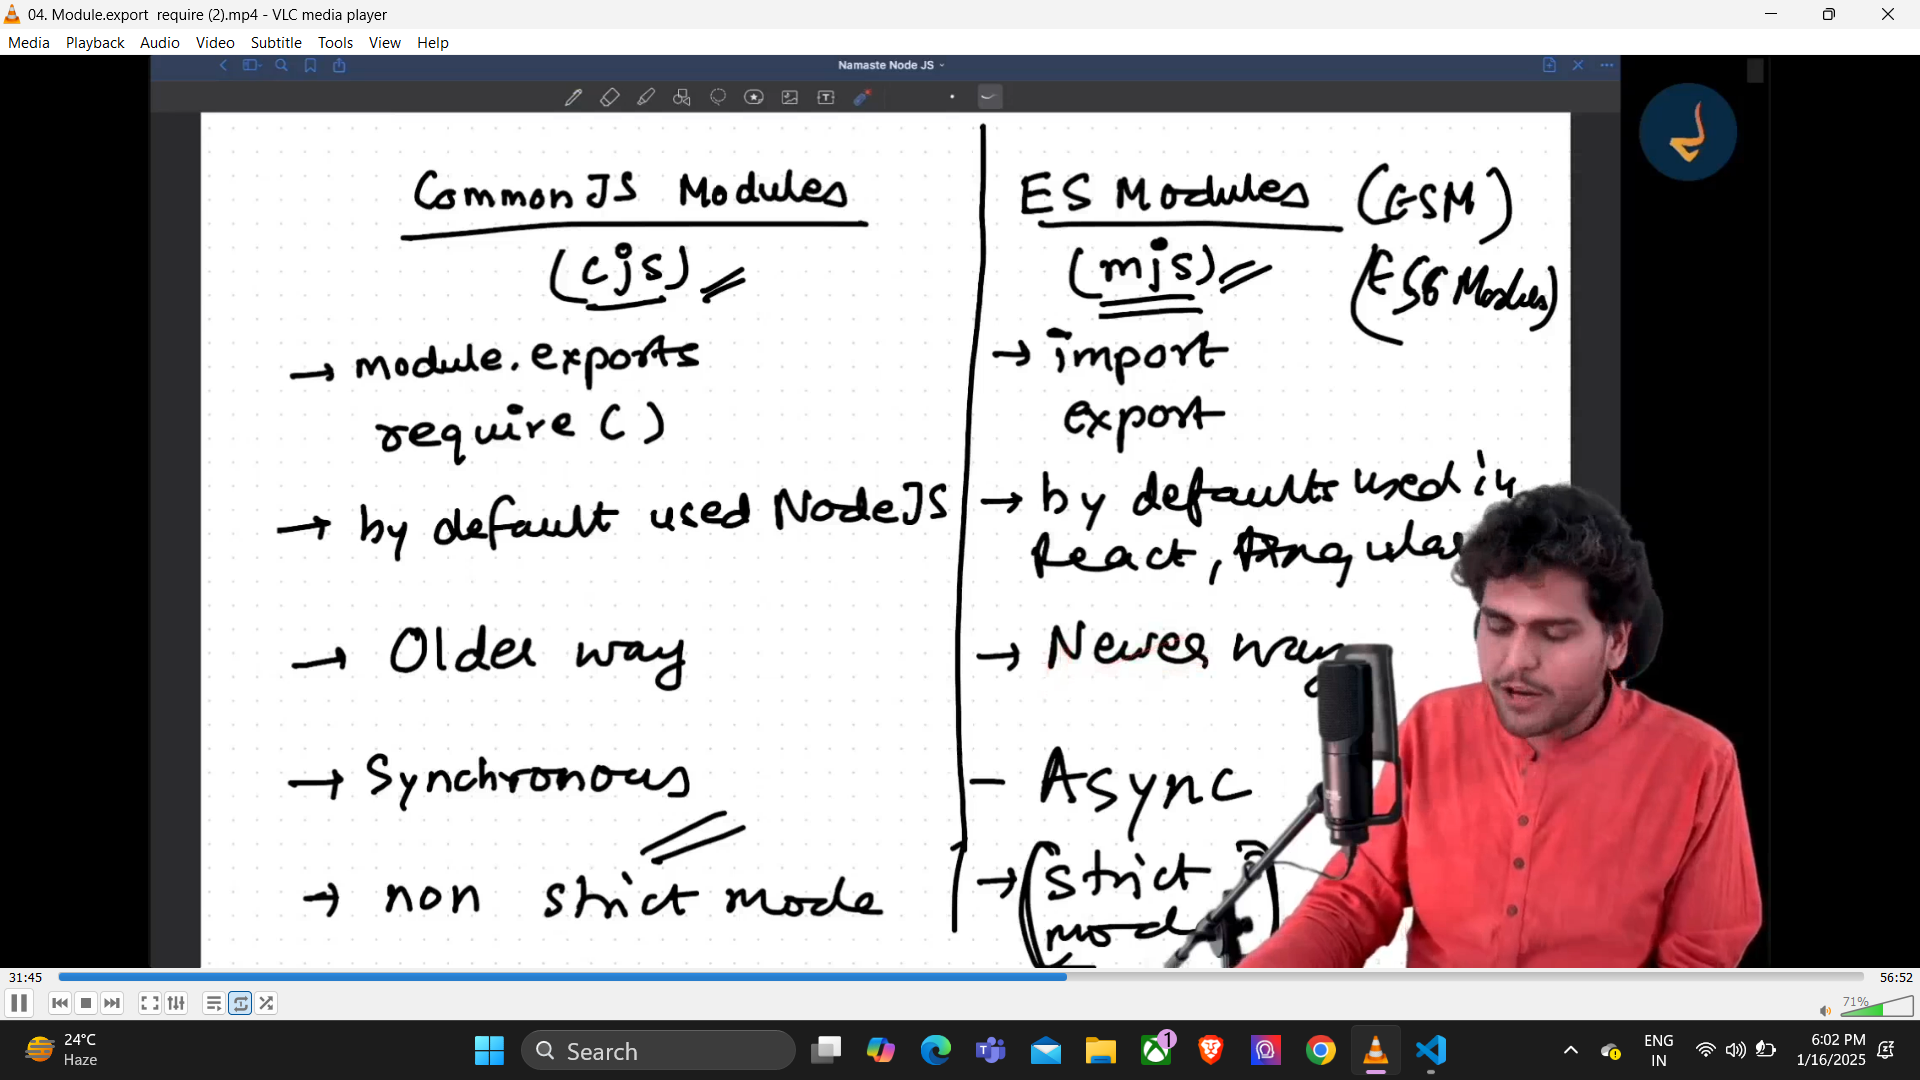 04. Module.export  require (2).mp4 - VLC media player
Media Playback Audio Video Subtitle Tools View Help
Namaste Node JS
CommonJS Modules
(cjs)
→ module.exports
require ( )
→ by default used NodeJS
→ Older way
→ Synchronous
→ non strict mode
ES Modules (ESM)
(mjs) (ES6 Modules)
→ import
export
→ by defaults used in
React, Angular
→ Newer way
- Async
→ strict
mod
31:45 56:52
71%
24°C
Haze
Search
1
ENG
IN
6:02 PM
1/16/2025